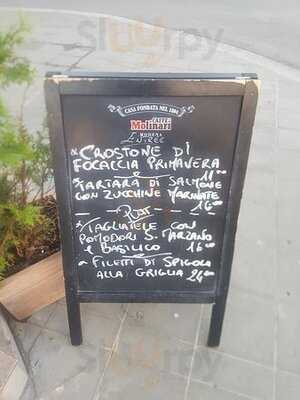 Sluurpy
CASA FONDATA NEL 1804
CAFFÈ
Molinari
MODENA
ENTREE
* CROSTONE DI
FOCACCIA PRIMAVERA
11,00
* TARTARA DI SALMONE
CON ZUCCHINE MARINATE
16,00
* TAGLIATELE CON
POMODORI S. MARZANO
E BASILICO 16,00
* FILETTI DI SPIGOLA
ALLA GRIGLIA 24,00
Sluurpy